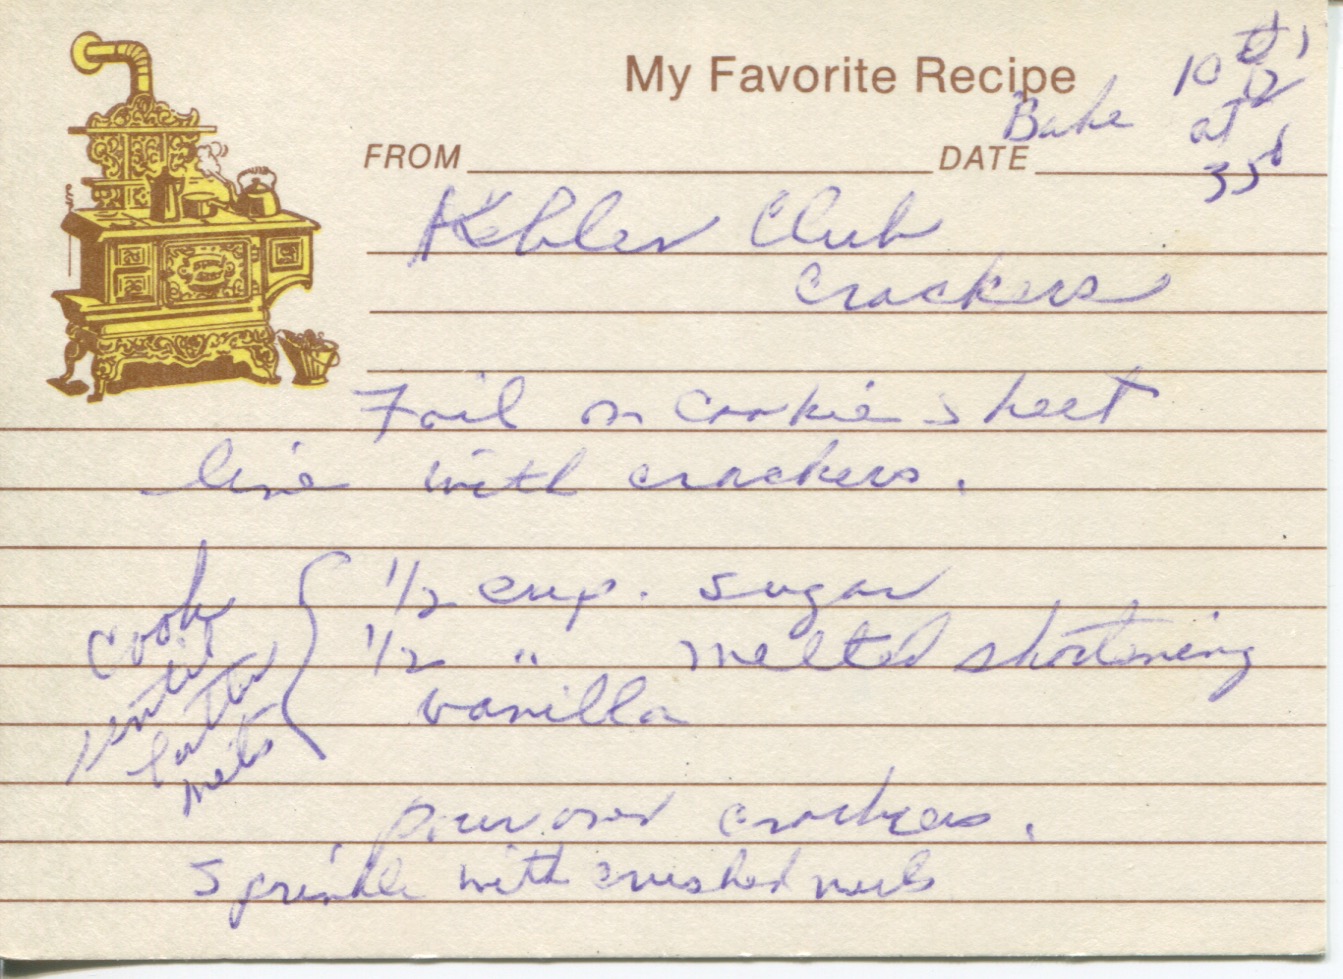 My Favorite Recipe
Bake 10 to 12
at
350
FROM DATE
Kebler Club
Crackers
Foil on cookie sheet
line with crackers.
Cook until butter melts
1/2 cup. sugar
1/2 " melted shortening
vanilla
pour over crackers.
Sprinkle with crushed nuts